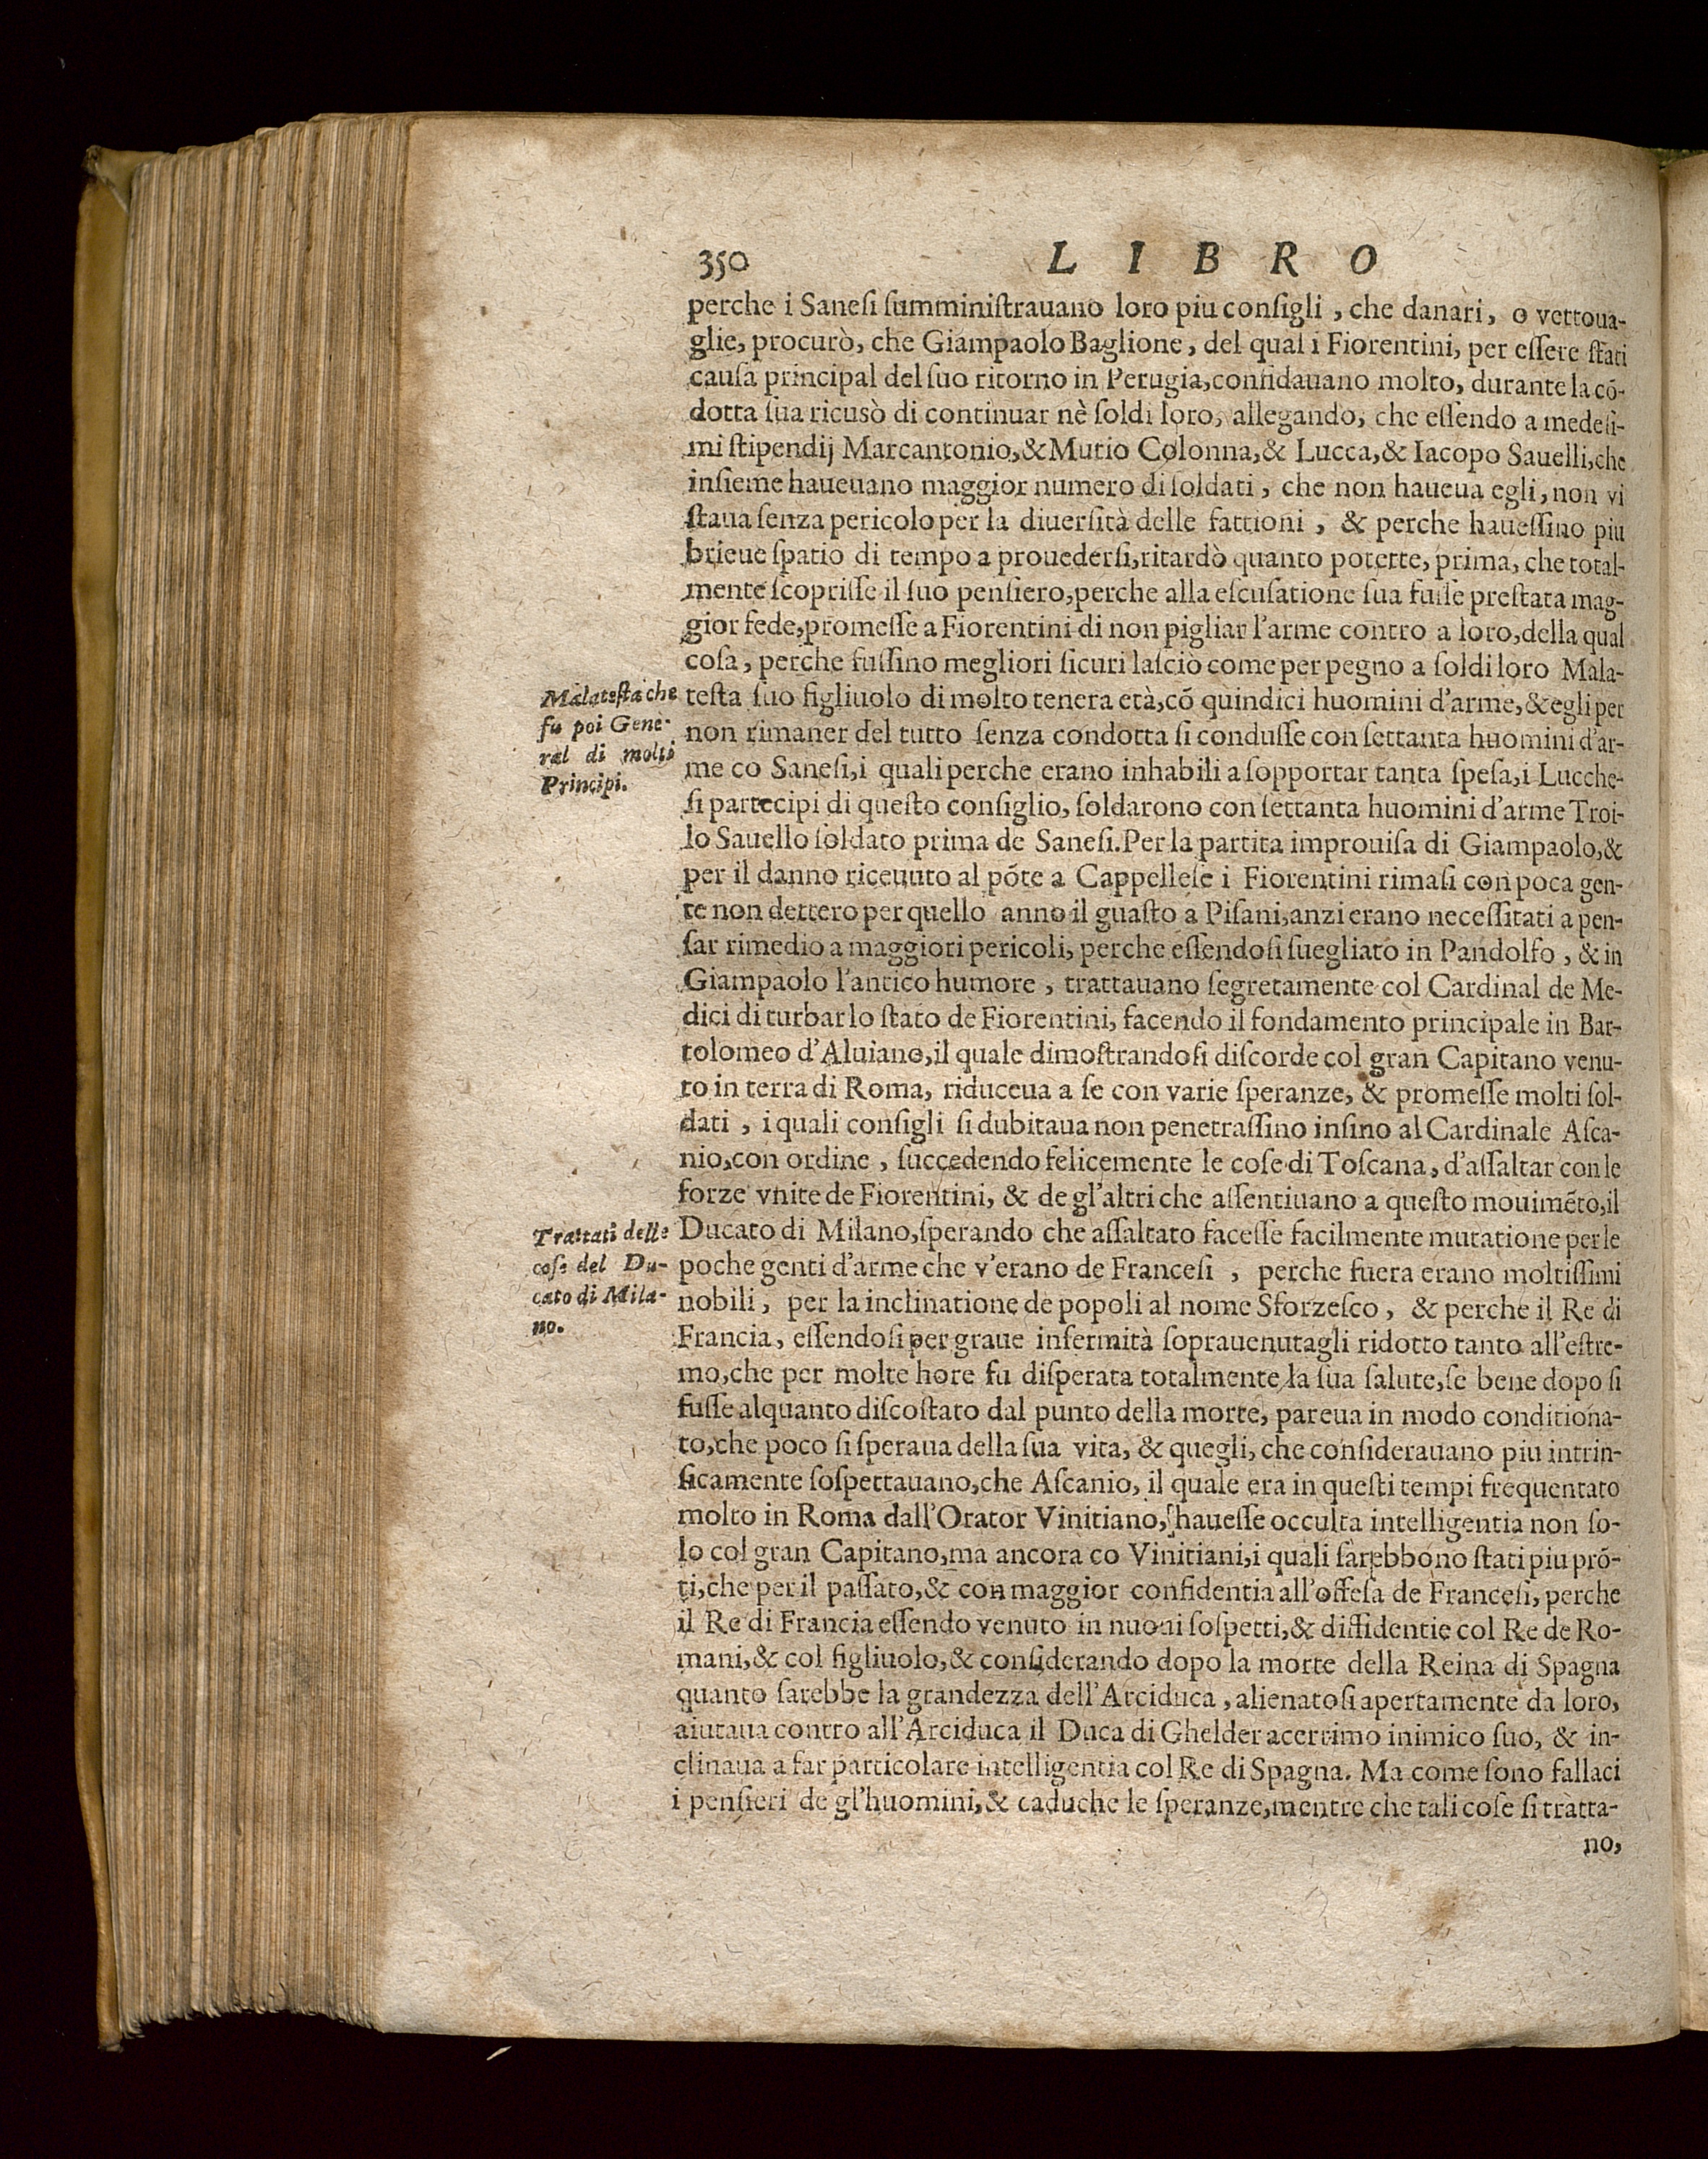 350 LIBRO
perche i Saneſi ſumminiſtrauano loro piu conſigli, che danari, o vettoua-
glie, procurò, che Giampaolo Baglione, del qual i Fiorentini, per eſſere ſtati
cauſa principal del ſuo ritorno in Perugia, confidauano molto, durante la cõ-
dotta ſua ricusò di continuar nè ſoldi loro, allegando, che eſſendo a medeſi-
mi ſtipendij Marcantonio, & Mutio Colonna, & Lucca, & Iacopo Sauelli, che
inſieme haueuano maggior numero di ſoldati, che non haueua egli, non vi
ſtaua ſenza pericolo per la diuerſità delle fattioni, & perche haueſſino piu
brieue ſpatio di tempo a prouederſi, ritardò quanto potette, prima, che total-
mente ſcopriſſe il ſuo penſiero, perche alla eſcuſatione ſua fuſſe preſtata mag-
gior fede, promeſſe a Fiorentini di non pigliar l'arme contro a loro, della qual
coſa, perche fuſſino megliori ſicuri laſciò come per pegno a ſoldi loro Mala-
Malateſta che
fu poi Gene-
ral di molti
Principi.
teſta ſuo figliuolo di molto tenera età, cõ quindici huomini d'arme, & egli per
non rimaner del tutto ſenza condotta ſi conduſſe con ſettanta huomini d'ar-
me co Saneſi, i quali perche erano inhabili a ſopportar tanta ſpeſa, i Lucche-
ſi partecipi di queſto conſiglio, ſoldarono con ſettanta huomini d'arme Troi-
lo Sauello ſoldato prima de Saneſi. Per la partita improuiſa di Giampaolo, &
per il danno riceuuto al põte a Cappelleſe i Fiorentini rimaſi con poca gen-
te non dettero per quello anno il guaſto a Piſani, anzi erano neceſſitati a pen-
ſar rimedio a maggiori pericoli, perche eſſendoſi ſuegliato in Pandolfo, & in
Giampaolo l'antico humore, trattauano ſegretamente col Cardinal de Me-
dici di turbar lo ſtato de Fiorentini, facendo il fondamento principale in Bar-
tolomeo d'Aluiano, il quale dimoſtrandoſi diſcorde col gran Capitano venu-
to in terra di Roma, riduceua a ſe con varie ſperanze, & promeſſe molti ſol-
dati, i quali conſigli ſi dubitaua non penetraſſino inſino al Cardinale Aſca-
nio, con ordine, ſuccedendo felicemente le coſe di Toſcana, d'aſſaltar con le
forze vnite de Fiorentini, & de gl'altri che aſſentiuano a queſto mouimẽto, il
Trattati delle
coſe del Du-
cato di Mila-
no.
Ducato di Milano, ſperando che aſſaltato faceſſe facilmente mutatione per le
poche genti d'arme che v'erano de Franceſi, perche fuera erano moltiſſimi
nobili, per la inclinatione de popoli al nome Sforzeſco, & perche il Re di
Francia, eſſendoſi per graue infermità ſoprauenutagli ridotto tanto all'eſtre-
mo, che per molte hore fu diſperata totalmente la ſua ſalute, ſe bene dopo ſi
fuſſe alquanto diſcoſtato dal punto della morte, pareua in modo conditiona-
to, che poco ſi ſperaua della ſua vita, & quegli, che conſiderauano piu intrin-
ſicamente ſoſpettauano, che Aſcanio, il quale era in queſti tempi frequentato
molto in Roma dall'Orator Vinitiano, haueſſe occulta intelligentia non ſo-
lo col gran Capitano, ma ancora co Vinitiani, i quali ſarebbono ſtati piu prõ-
ti, che per il paſſato, & con maggior confidentia all'offeſa de Franceſi, perche
il Re di Francia eſſendo venuto in nuoui ſoſpetti, & diffidentie col Re de Ro-
mani, & col figliuolo, & conſiderando dopo la morte della Reina di Spagna
quanto ſarebbe la grandezza dell'Arciduca, alienatoſi apertamente da loro,
aiutaua contro all'Arciduca il Duca di Ghelder acerrimo inimico ſuo, & in-
clinaua a far particolare intelligentia col Re di Spagna. Ma come ſono fallaci
i penſieri de gl'huomini, & caduche le ſperanze, mentre che tali coſe ſi tratta-
no,